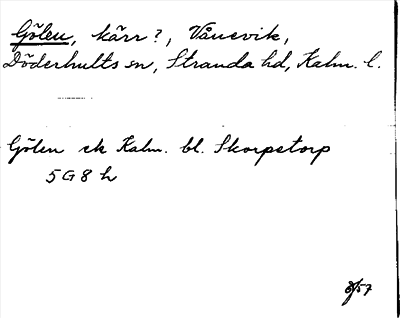 Gölen, kärr?, Vånevik,
Döderhults sn, Stranda hd, Kalm. l.
Gölen ek Kalm. bl. Skorpetorp
5G8h
57